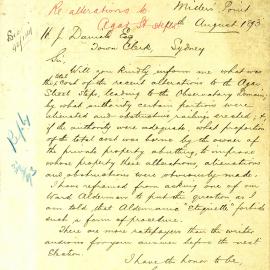 Miller's Point
Re alterations to
Agar St Steps
th August 1893
H J Daniels Esq
Town Clerk, Sydney
Sir,
Will you kindly inform me what was
the cost of the recent alterations to the Agar
Street Steps, leading to the Observatory Domain,
by what authority certain portions were
alienated and obstructive railings erected, & if
the authority were adequate, what proportion
of the total cost was borne by the owner of
the private property abutting, to improve
whose property these alterations, alienations
and obstructions were obviously made.
I have refrained from asking one of our
Ward Aldermen to put the question as I
am told that Aldermanic "Etiquette" forbids
such a form of procedure.
There are more ratepayers than the writer
anxious for your answer before the next
Election.
I have the honor to be,
Reply